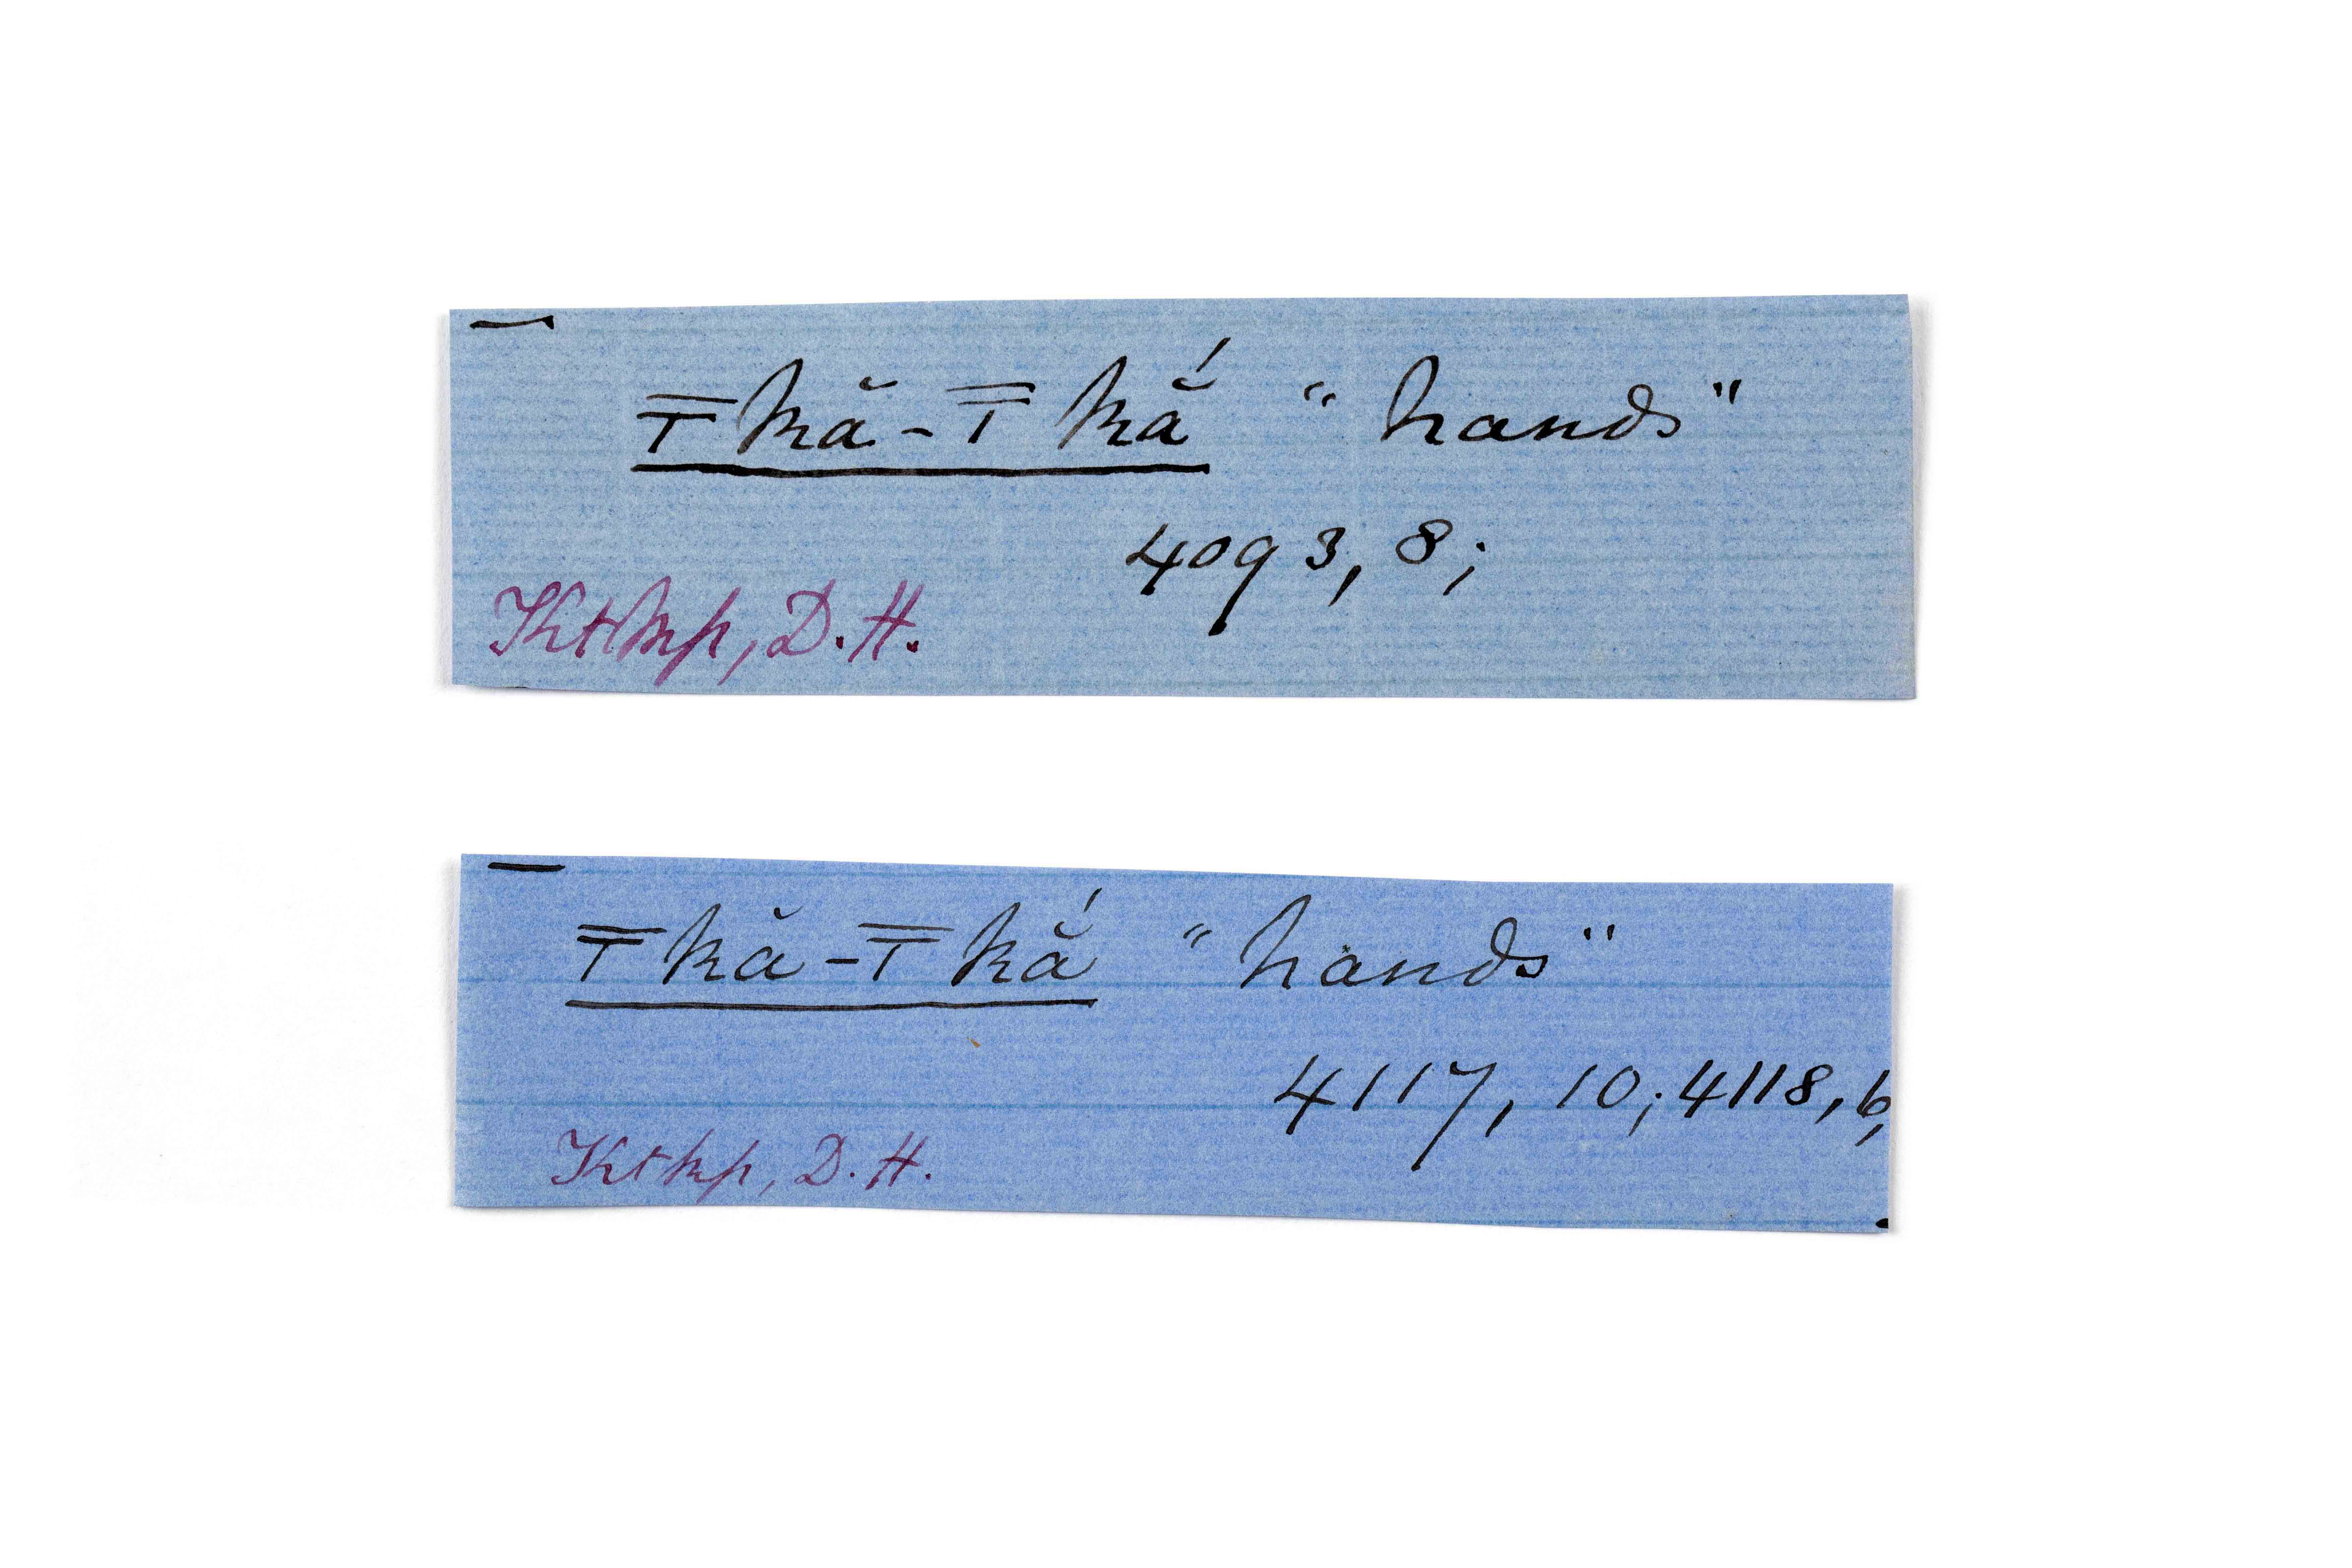 T̄kă-T̄kắ "hands"
4093, 8;
Ktkp, D.H.
T̄kă-T̄kắ "hands"
4117, 10; 4118, 6,
Ktkp, D.H.